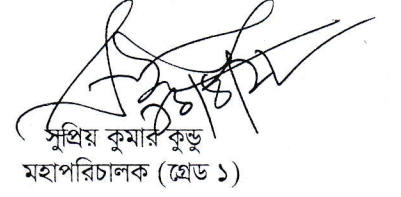 সুপ্রিয় কুমার কুন্ডু
মহাপরিচালক (গ্রেড ১)